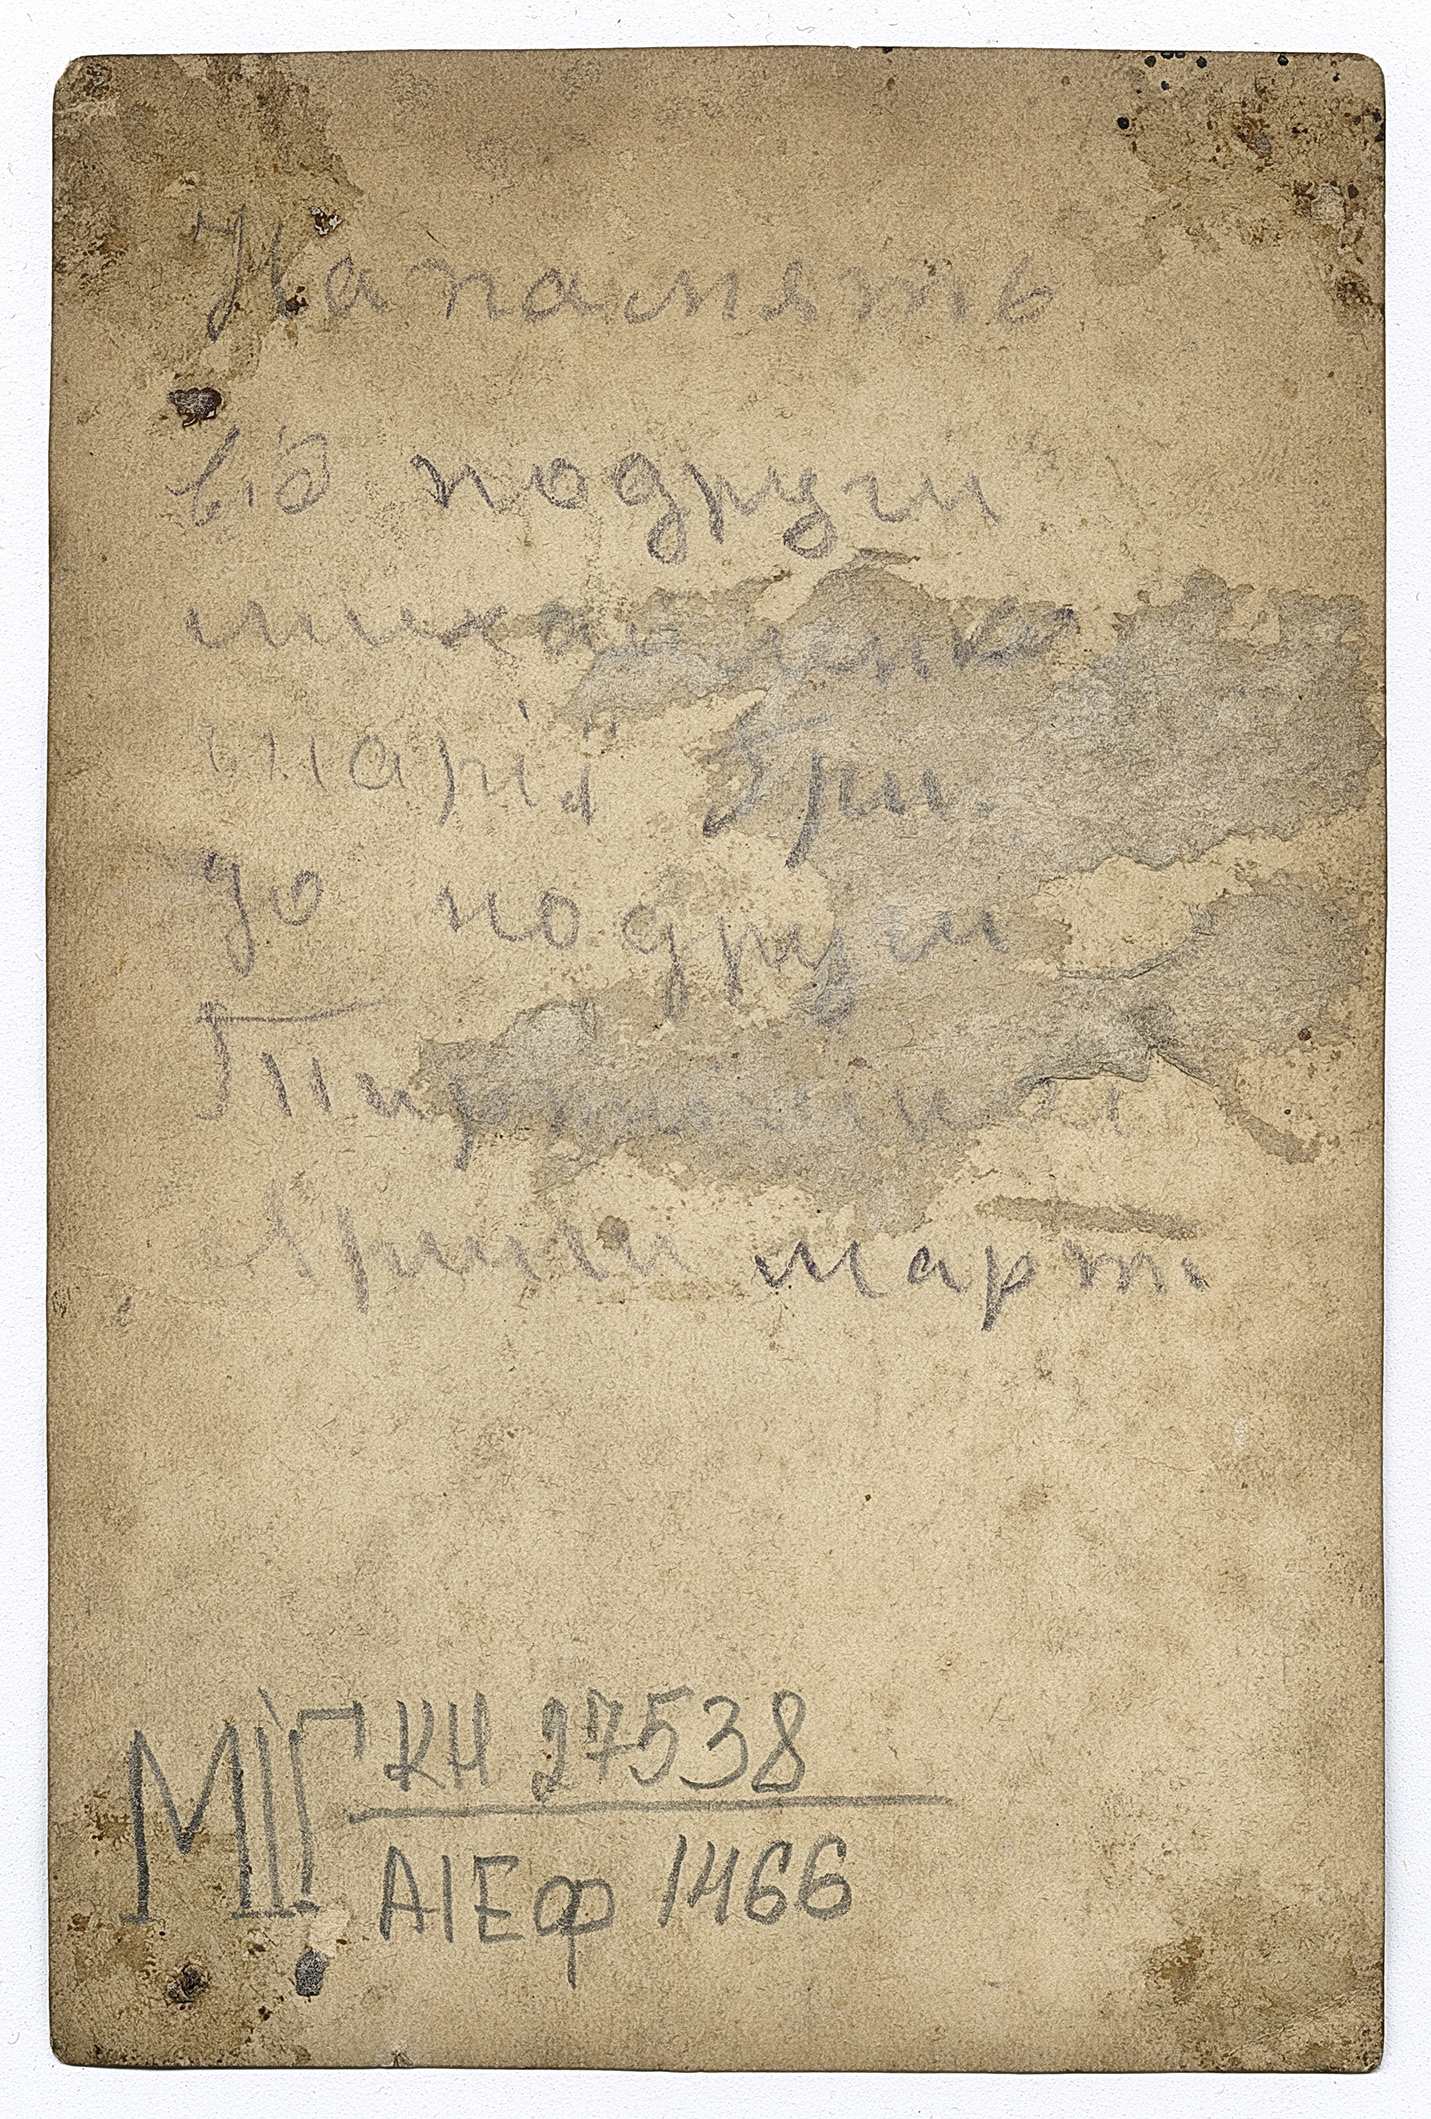 На память
від подруги
михайленко
марії Гри.
до подруги

Ярини март.
МІГ КН 27538
АІЕф 1466